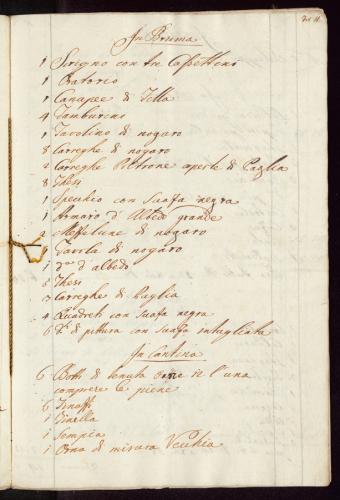 In Brima
1 Scrigno con tre Cassettini
1 Oratorio
1 Canapee di Tella
4 Tamburini
1 Tavolino di nogaro
8 Carreghe di nogaro
2 Carreghe Poltrone coperte di Paglia
8 Thesi
1 Specchio con Suasa negra
1 Armaro d'Albedo grande
di nogaro
Tavola di nogaro
1 d.º d'albedo
Thesi
Carreghe di Paglia
4 Quadreti con Suasa negra
6 d.i di pittura con Suasa intagliata
In Cantina
6 Botti di tenuta Orne l'una
compore le piene
6 Tinazzi
1 Tinella
1 Sempia
1 Orna di misura Vecchia